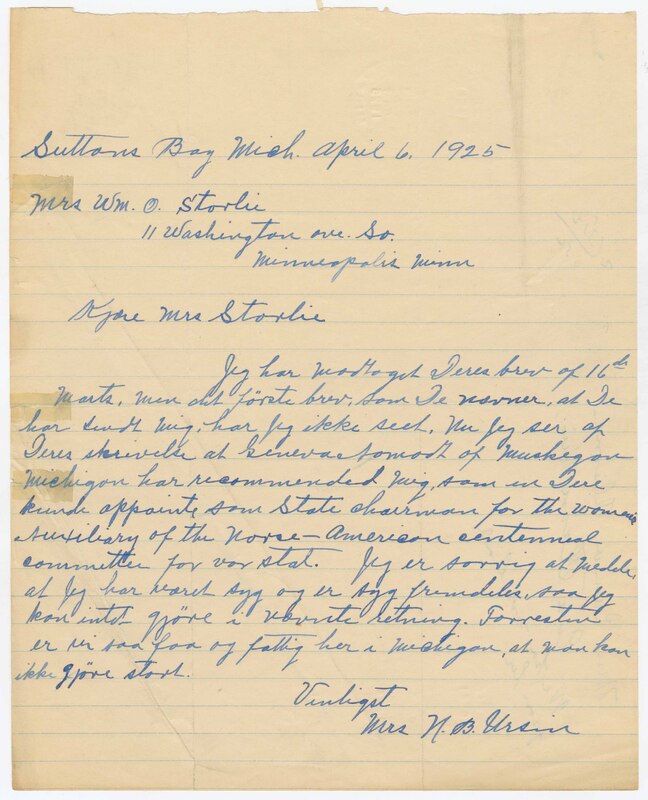 Suttons Bay Mich. April 6, 1925
Mrs Wm. O. Storlie
11 Washington ave. So.
Minneapolis Minn
Kjære Mrs Storlie
Jeg har modtaget Deres brev of 16de
Marts, men det förste brev, som De nævner, at De
har sendt Mig, har Jeg ikke seet. Nu Jeg ser af
Deres skrivelse at Geneva Aamodt of Muskegon
Michigan har recommended Mig, som en Dere
kunde appointe som State chairman for the womens
Auxiliary of the Norse-American centennial
committee for vor stat. Jeg er sorrig at Medele,
at Jeg har været syg og er syg fremdeles, saa Jeg
kan intet gjöre i nævnte retning. Forresten
er vi saa faa og fattig her i Michigan, at man kan
ikke gjöre stort.
Venligst
Mrs N. B. Ursin